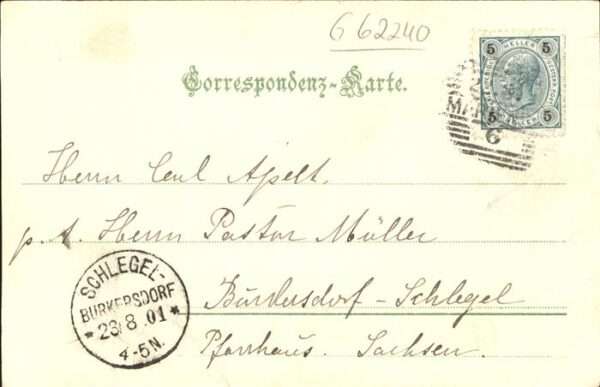 G 62240
5 HELLER 5
5 HELLER 5
MAR
6
Correspondenz-Karte.
Herrn Carl Apelt.
p. A. Herrn Pastor Müller
Burkersdorf-Schlegel
Pfarrhaus. Sachsen.
SCHLEGEL-
BURKERSDORF
* 28/8.01 *
4-5N.